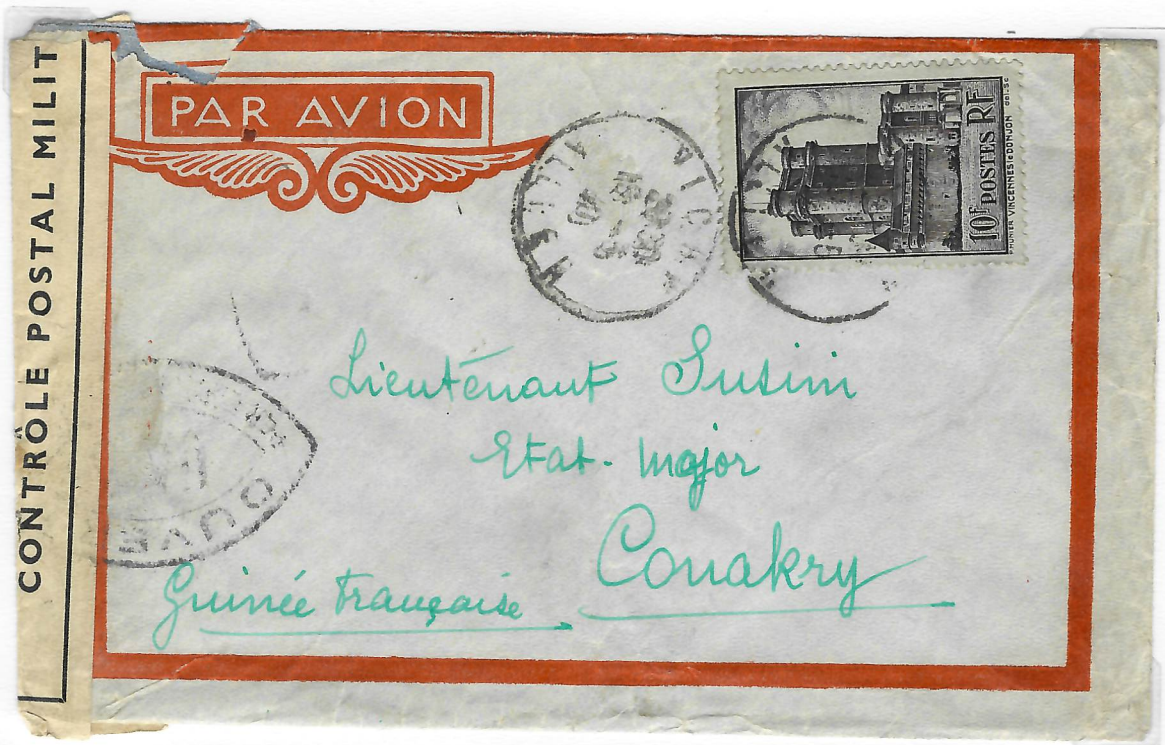 CONTRÔLE POSTAL MILIT
PAR AVION
VICHY
ALLIER
10F POSTES RF
P.MUNIER VINCENNES LE DONJON
OUVE
Lieutenant Susini
Etat-Major
Conakry
Guinée Française